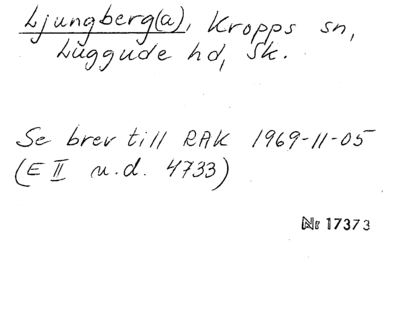 Ljungberg(a), Kropps sn,
Luggude hd, Sk.
Se brev till RAK 1969-11-05
(E II u.d. 4733)
Nr 17373